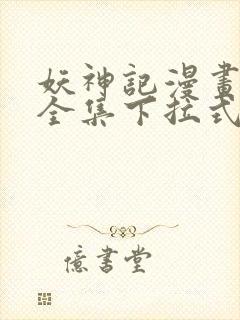 妖神記漫畫
全集下拉式
億書堂